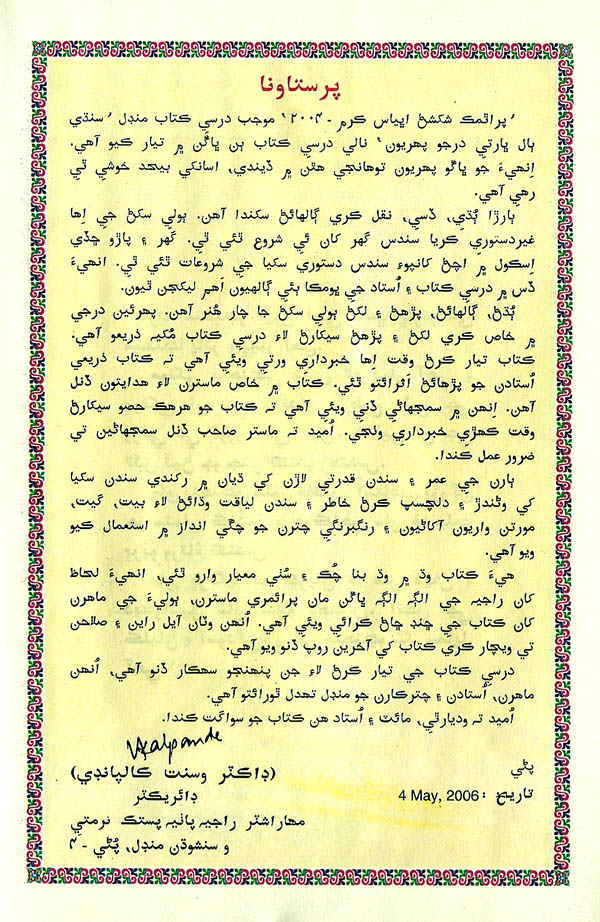 پرستاونا
’پراٿمڪ شڪشڻ اڀياس ڪرم - ۲۰۰۴‘ موجب درسي ڪتاب منڊل ’سنڌي
ٻال ڀارتي درجو پهريون‘ نالي درسي ڪتاب ٻن ڀاڱن ۾ تيار ڪيو آهي.
اِنهيءَ جو ڀاڱو پهريون توهانجي هٿن ۾ ڏيندي، اسانکي بيحد خوشي ٿي
رهي آهي.
ٻارڙا ٻُڌي، ڏسي، نقل ڪري ڳالهائڻ سکندا آهن. ٻولي سکڻ جي اِها
غيردستوري ڪريا سندس گهر کان ئي شروع ٿئي ٿي. گهر ۽ پاڙو ڇڏي
اِسڪول ۾ اچڻ کانپوءِ سندس دستوري سکيا جي شروعات ٿئي ٿي. انهيءَ
ڏس ۾ درسي ڪتاب ۽ اُستاد جي ڀومڪا ٻئي ڳالهيون اَهم ليکجن ٿيون.
ٻُڌڻ، ڳالهائڻ، پڙهڻ ۽ لکڻ ٻولي سکڻ جا چار هُنر آهن. پهرئين درجي
۾ خاص ڪري لکڻ ۽ پڙهڻ سيکارڻ لاءِ درسي ڪتاب مُکيه ذريعو آهي.
ڪتاب تيار ڪرڻ وقت اِها خبرداري ورتي ويئي آهي ته ڪتاب ذريعي
اُستادن جو پڙهائڻ اَثرائتو ٿئي. ڪتاب ۾ خاص ماسترن لاءِ هدايتون ڏنل
آهن. اِنهن ۾ سمجهاڻي ڏني ويئي آهي ته ڪتاب جو هرهڪ حصو سيکارڻ
وقت ڪهڙي خبرداري وٺجي. اُميد ته ماستر صاحب ڏنل سمجهاڻين تي
ضرور عمل ڪندا.
ٻارن جي عمر ۽ سندن قدرتي لاڙن کي ڌيان ۾ رکندي سندن سکيا
کي وڻندڙ ۽ دلچسپ ڪرڻ خاطر ۽ سندن لياقت وڌائڻ لاءِ بيت، گيت،
مورتن واريون آکاڻيون ۽ رنگبرنگي چترن جو چڱي انداز ۾ استعمال ڪيو
ويو آهي.
هيءَ ڪتاب وڌ ۾ وڌ بنا چُڪ ۽ سُٺي معيار وارو ٿئي، انهيءَ لحاظ
کان راجيه جي الڳ الڳ ڀاڱن مان پرائمري ماسترن، ٻوليءَ جي ماهرن
کان ڪتاب جي ڇنڊ ڇاڻ ڪرائي ويئي آهي. اُنهن وٽان آيل راين ۽ صلاحن
تي ويچار ڪري ڪتاب کي آخرين روپ ڏنو ويو آهي.
درسي ڪتاب جي تيار ڪرڻ لاءِ جن پنهنجو سهڪار ڏنو آهي، اُنهن
ماهرن، اُستادن ۽ چترڪارن جو منڊل تهدل ٿورائتو آهي.
اُميد ته وديارٿي، مائٽ ۽ اُستاد هن ڪتاب جو سواگت ڪندا.
پڻي
(ڊاڪٽر وسنت ڪالپانڊي)
تاريخ : 4 May, 2006
ڊائريڪٽر
مهاراشٽر راجيه پاٺيه پستڪ نرمتي
و سنشوڌن منڊل، پُڻي - ۴